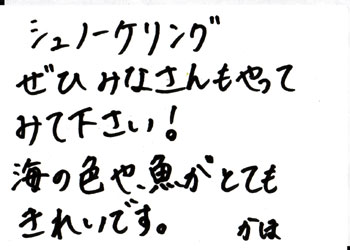 シュノーケリング
ぜひみなさんもやって
みて下さい！
海の色や、魚がとても
きれいです。
かほ